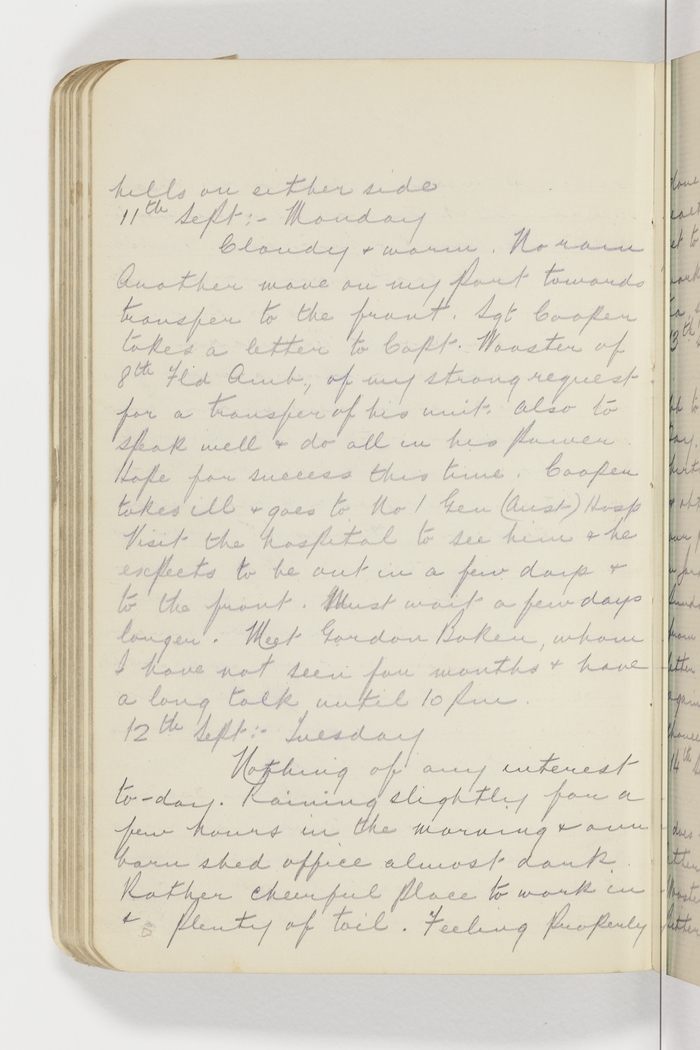 hills on either side
11th Sept:- Monday
Cloudy & warm. No rain
Another move on my part towards
transfer to the front. Sgt Cooper
takes a letter to Capt. Wooster of
8th Fld Amb., of my strong request
for a transfer of his unit. Also to
speak well & do all in his power.
Hope for success this time. Cooper
takes ill & goes to No 1 Gen (Aust) Hosp
Visit the hospital to see him & he
expects to be out in a few days &
to the front. Must wait a few days
longer. Meet Gordon Baker, whom
I have not seen for months & have
a long talk until 10 pm.
12th Sept:- Tuesday
Nothing of any interest
to-day. Raining slightly for a
few hours in the morning & our
barn shed office almost dark.
Rather cheerful place to work in
& plenty of toil. Feeling properly